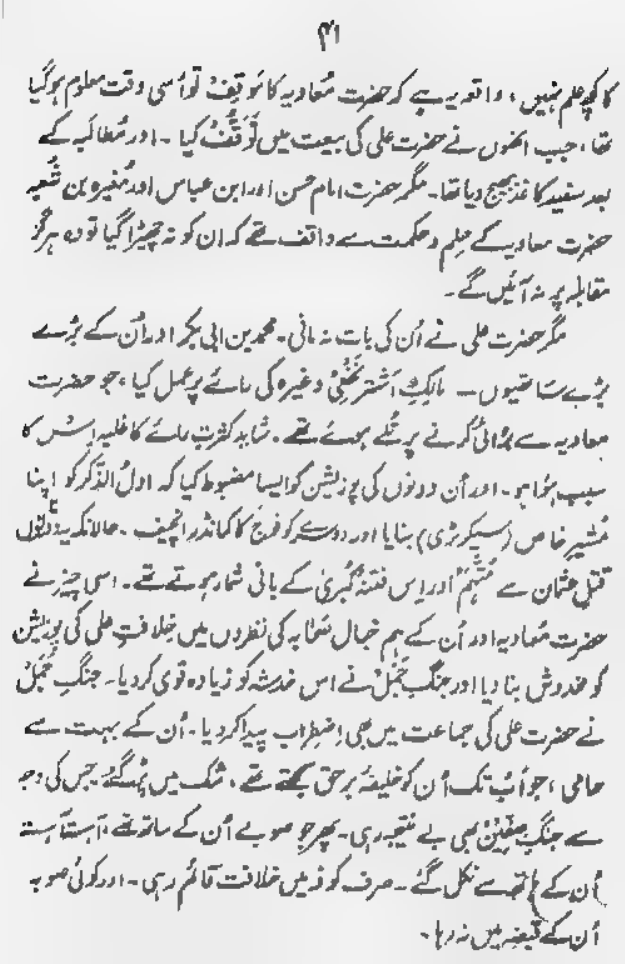 ۴۱
کا کچھ علم نہیں، واقعہ یہ ہے کہ حضرت مُعاویہ کا مَوقِف تو اُسی وقت معلوم ہوگیا
تھا، جب انھوں نے حضرت علی کی بیعت میں تَوَقُّفْ کیا ۔ اور مُطالَبہ کے
بعد سفید کاغذ بھیج دیا تھا۔ مگر حضرت امام حسن اور ابن عباس اور مُغیرہ بن شُعبہ
حضرت معاویہ کے حِلم و حکمت سے واقف تھے کہ ان کو نہ چھیڑا گیا تو وہ ہرگز
مقابلہ پر نہ آئیں گے ۔
مگر حضرت علی نے اُن کی بات نہ مانی۔ محمد بن ابی بکر اور اُن کے بڑے
بڑے ساتھیوں ـ مالِکِ اَشْتَر نَخَعِیْ وغیرہ کی رائے پر عمل کیا، جو حضرت
معاویہ سے لڑائی کرنے پر تُلے ہوئے تھے۔ شاید کثرتِ رائے کا غلبہ اِس کا
سبب ہُوا ہو ۔ اور اُن دونوں کی پوزیشن کو ایسا مضبوط کیا کہ اول الذّکر کو اپنا
مُشیرِ خاص (سیکریٹری) بنایا اور دوسرے کو فوج کا کمانڈر انچیف ۔ حالانکہ یہ دونوں
قتلِ عثمان سے مُتَّہَمْ اور اِس فتنۂ کُبریٰ کے بانی شمار ہوتے تھے ۔ اسی چیز نے
حضرت مُعاویہ اور اُن کے ہم خیال صَحابہ کی نظروں میں خِلافتِ علی کی پوزیشن
کو مخدوش بنا دیا اور جنگِ جَمَلْ نے اس خدشہ کو زیادہ قوی کردیا۔ جنگِ جَمَلْ
نے حضرت علی کی جماعت میں بھی اِضطراب پیدا کردیا ۔ اُن کے بہت سے
حامی، جو اَب تک اُن کو خلیفۂ برحق سمجھتے تھے، شک میں پڑ گئے جس کی وجہ
سے جنگِ صِفِّیْنْ بھی بے نتیجہ رہی۔ پھر جو صوبے اُن کے ساتھ تھے، آہستہ آہستہ
اُن کے ہاتھ سے نکل گئے ۔ صرف کوفہ میں خلافت قائم رہی ۔ اور کوئی صوبہ
اُن کے قبضہ میں نہ رہا۔